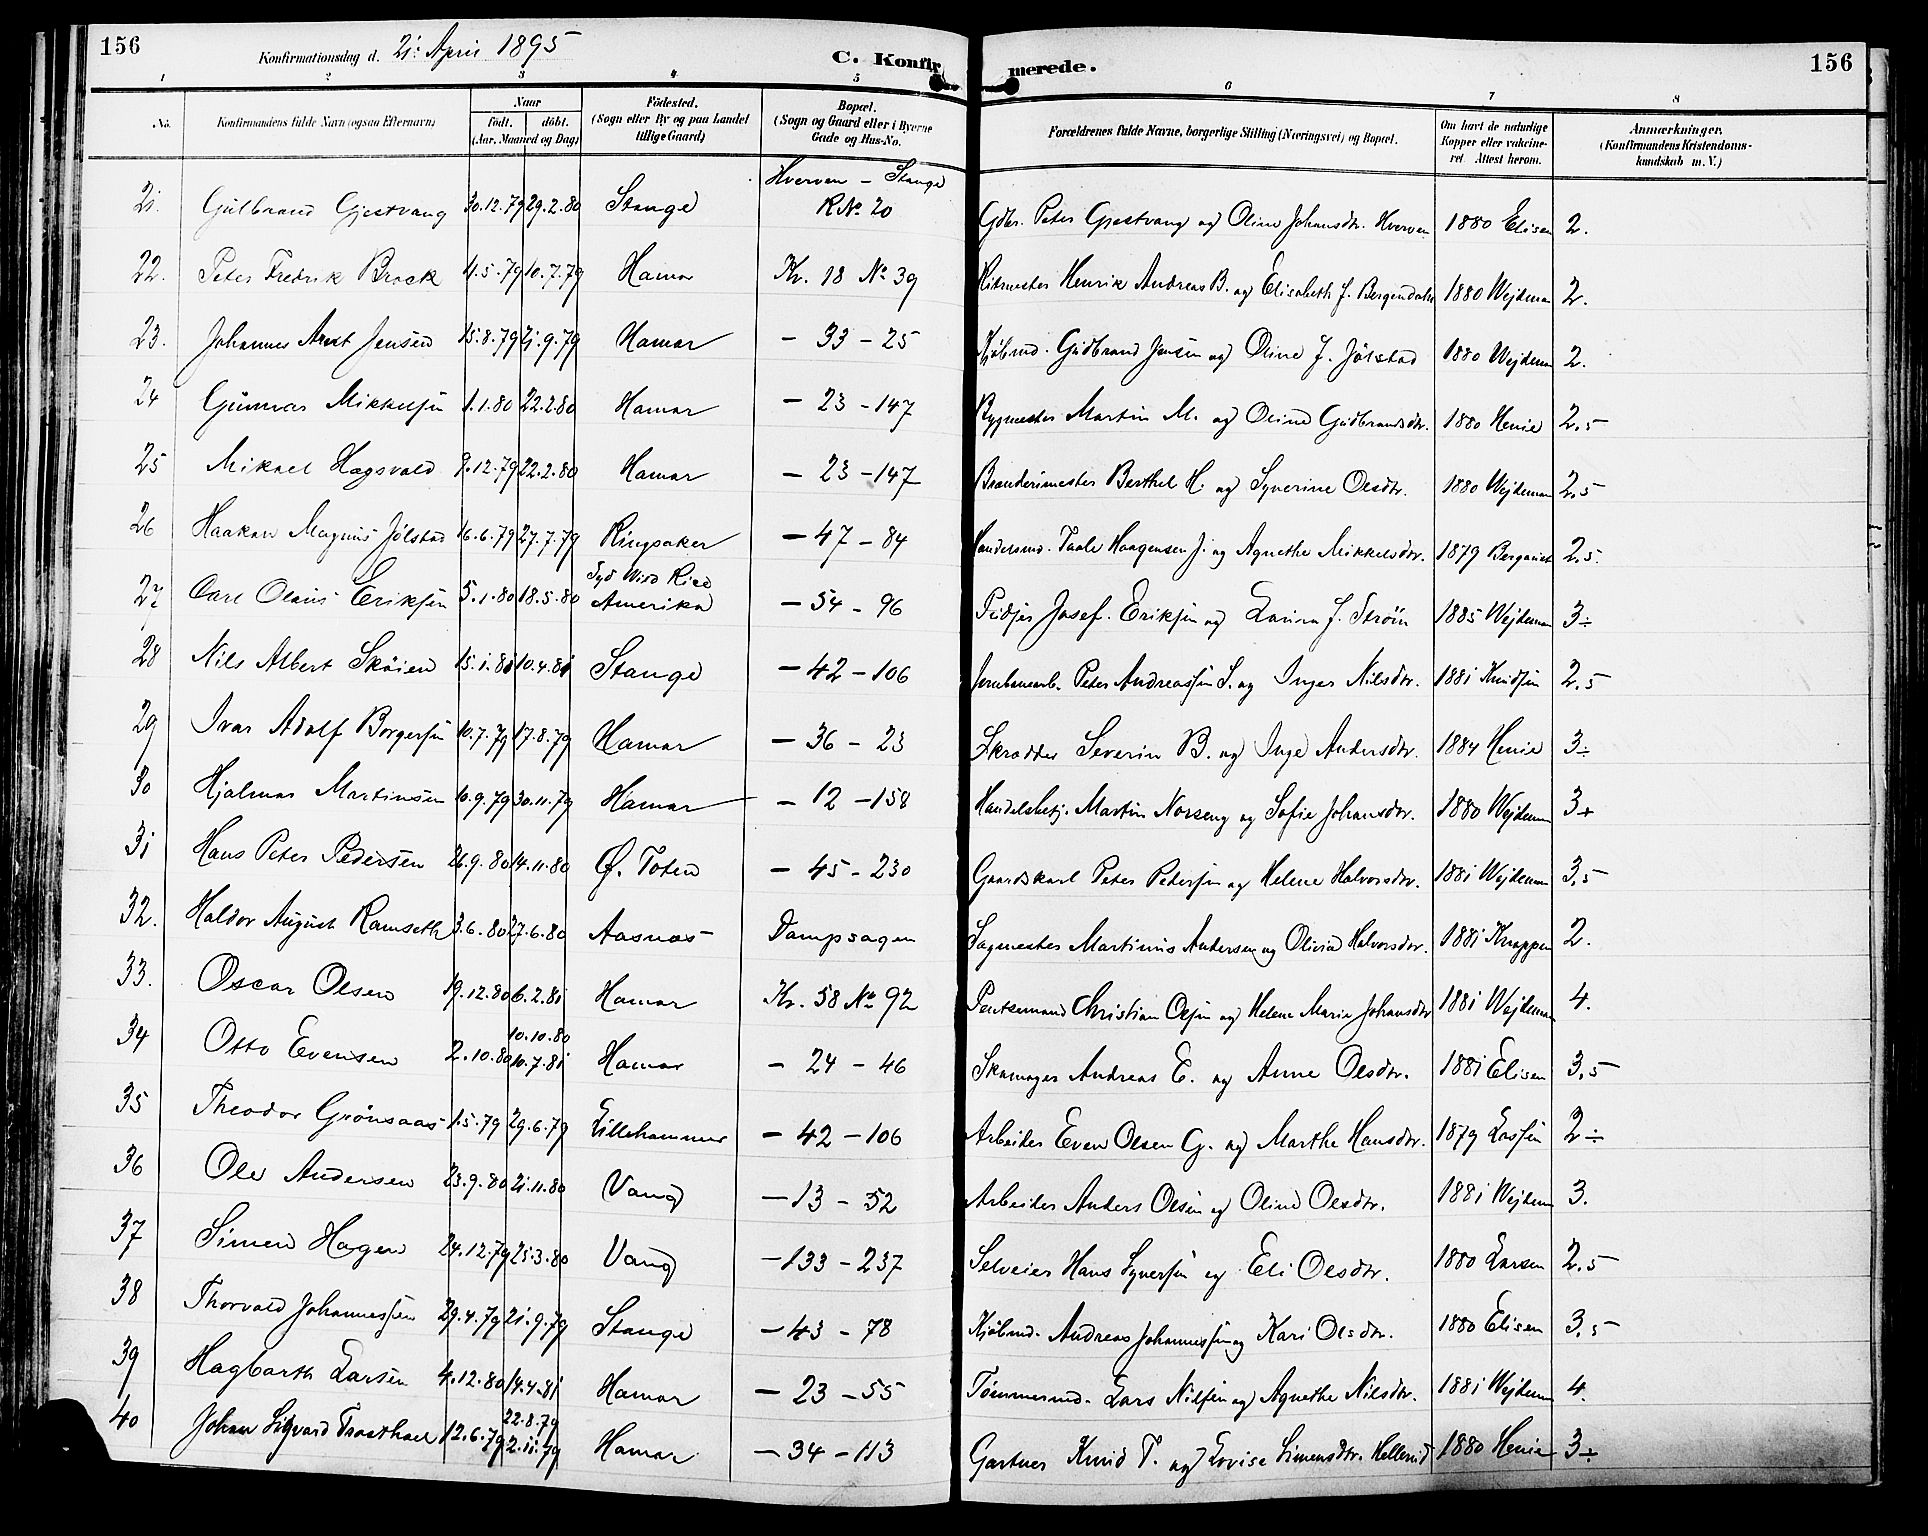 156
Konfirmationsdag d. 21: April 1895
C. Konfirmerede.
156
1 2 3 4 5 6 7 8
No.
Konfirmandens fulde Navn (ogsaa Efternavn)
Naar
födt. döbt.
(Aar, Maaned og Dag)
Födested.
(Sogn eller By og paa Landet tillige Gaard)
Bopæl.
(Sogn og Gaard eller i Byerne Gade og Hus-No.
Forældrenes fulde Navne, borgerlige Stilling (Næringsvei) og Bopæl.
Om havt de naturlige Kopper eller vakcineret. Attest herom.
Anmærkninger.
(Konfirmandens Kristendomskundskab m. V.)
21. Gulbrand Gjestvang 30.12.79 29.2.80 Stange Hverven - Stange R No. 20 Gdbr. Peter Gjestvang og Oline Johansdtr. Hverven 1880 Elisen 2.
22. Peter Fredrik Brock 4.5.79 10.7.79 Hamar Kv. 18 No 39 Henrik Andreas B. og Elisabeth J. Bergendahl 1880 Wejdeman 2.
23. Johannes Arnt Jensen 15.8.79 21.9.79 Hamar - 33 - 25 Kjøbmd. Gudbrand Jensen og Oline J. Jølstad 1880 Wejdeman 2.
24 Gunnar Mikkelsen 1.1.80 22.2.80 Hamar - 23 - 147 Bygmester Martin M. og Oline Gudbrandsdtr. 1880 Henie 2,5
25 Mikael Hagsvold 9.12.79 22.2.80 Hamar - 23 - 147 Brænderimester Berthel H. og Syverine Olsdtr. 1880 Wejdeman 2,5
26 Haakon Magnus Jølstad 16.6.79 27.7.79 Ringsaker - 47 - 84 Handelsmd. Taale Haagensen J. og Agnethe Mikkelsdtr. 1879 2,5.
27 Carl Olaus Eriksen 5.1.80 18.5.80 Amerika - 54 - 96 Josef Eriksen og Laura J. Strøm 1885 Wejdeman 3÷
28 Nils Albert Skøien 15.1.81 10.4.81 Stange - 42 - 106 Jernbanearb. Peter Andreassen S. og Inger Nilsdtr. 1881 Knudsen 2,5
29 Ivar Adolf Borgersen 10.7.79 17.8.79 Hamar - 36 - 23 Skrædder Severin B. og Inge Andersdtr. 1884 Henie 3÷
30 Hjalmar Martinsen 10.9.79 30.11.79 Hamar - 12 - 158 Handelsbetj. Martin Norseng og Sofie Johansdtr. 1880 Wejdeman 3+
31 Hans Peter Pedersen 26.9.80 14.11.80 Ø. Toten - 45 - 230 Gaardskarl Peter Petersen og Helene Halvorsdtr. 1881 Wejdeman 3,5
32. Haldor August Ramseth 3.6.80 27.6.80 Aasnæs Dampsagen Sagmester Martinus Andersen og Olivia Halvorsdtr. 1881 Knappen 2.
33. Oscar Olsen 19.12.80 6.2.81 Hamar Kv. 58 No 92 Christian Olsen og Helene Marie Johansdtr 1881 Wejdeman 4.
34 Otto Evensen 2.10.80 10.10.80 10.7.81 Hamar - 24 - 46 Skomager Andreas E. og Anne Olsdtr. 1881 Elisen 3,5
35 Theodor Grønsaas 1.5.79 29.6.79 Lillehammer - 42 - 106 Arbeider Even Olsen G. og Marthe Hansdtr. 1879 Lassen 2÷
36 Ole Andersen 23.9.80 21.11.80 Vang - 13 - 52 Arbeider Anders Olsen og Oline Olsdtr. 1881 Wejdeman 3.
37 Simen Hagen 24.12.79 25.3.80 Vang - 133 - 237 Selveier Hans Syversen og Eli Olsdtr. 1880 Larsen 2,5
38 Thorvald Johannessen 29.4.79 21.9.79 Stange - 43 - 78 Kjøbmd. Andreas Johannessen og Kari Olsdtr. 1880 Elisen 3,5
39 Hagbarth Larsen 4.12.80 14.4.81 Hamar - 23 - 55 Tømmermd. Lars Nilsen og Agnethe Nilsdtr. 1881 Wejdeman 4.
40 Johan Sigvard Traathael 12.6.79 22.8.79 2.11.79 Hamar - 34 - 113 Gartner Knud T. og Lovise Simensdtr. Hellerud 1880 Henie 3÷